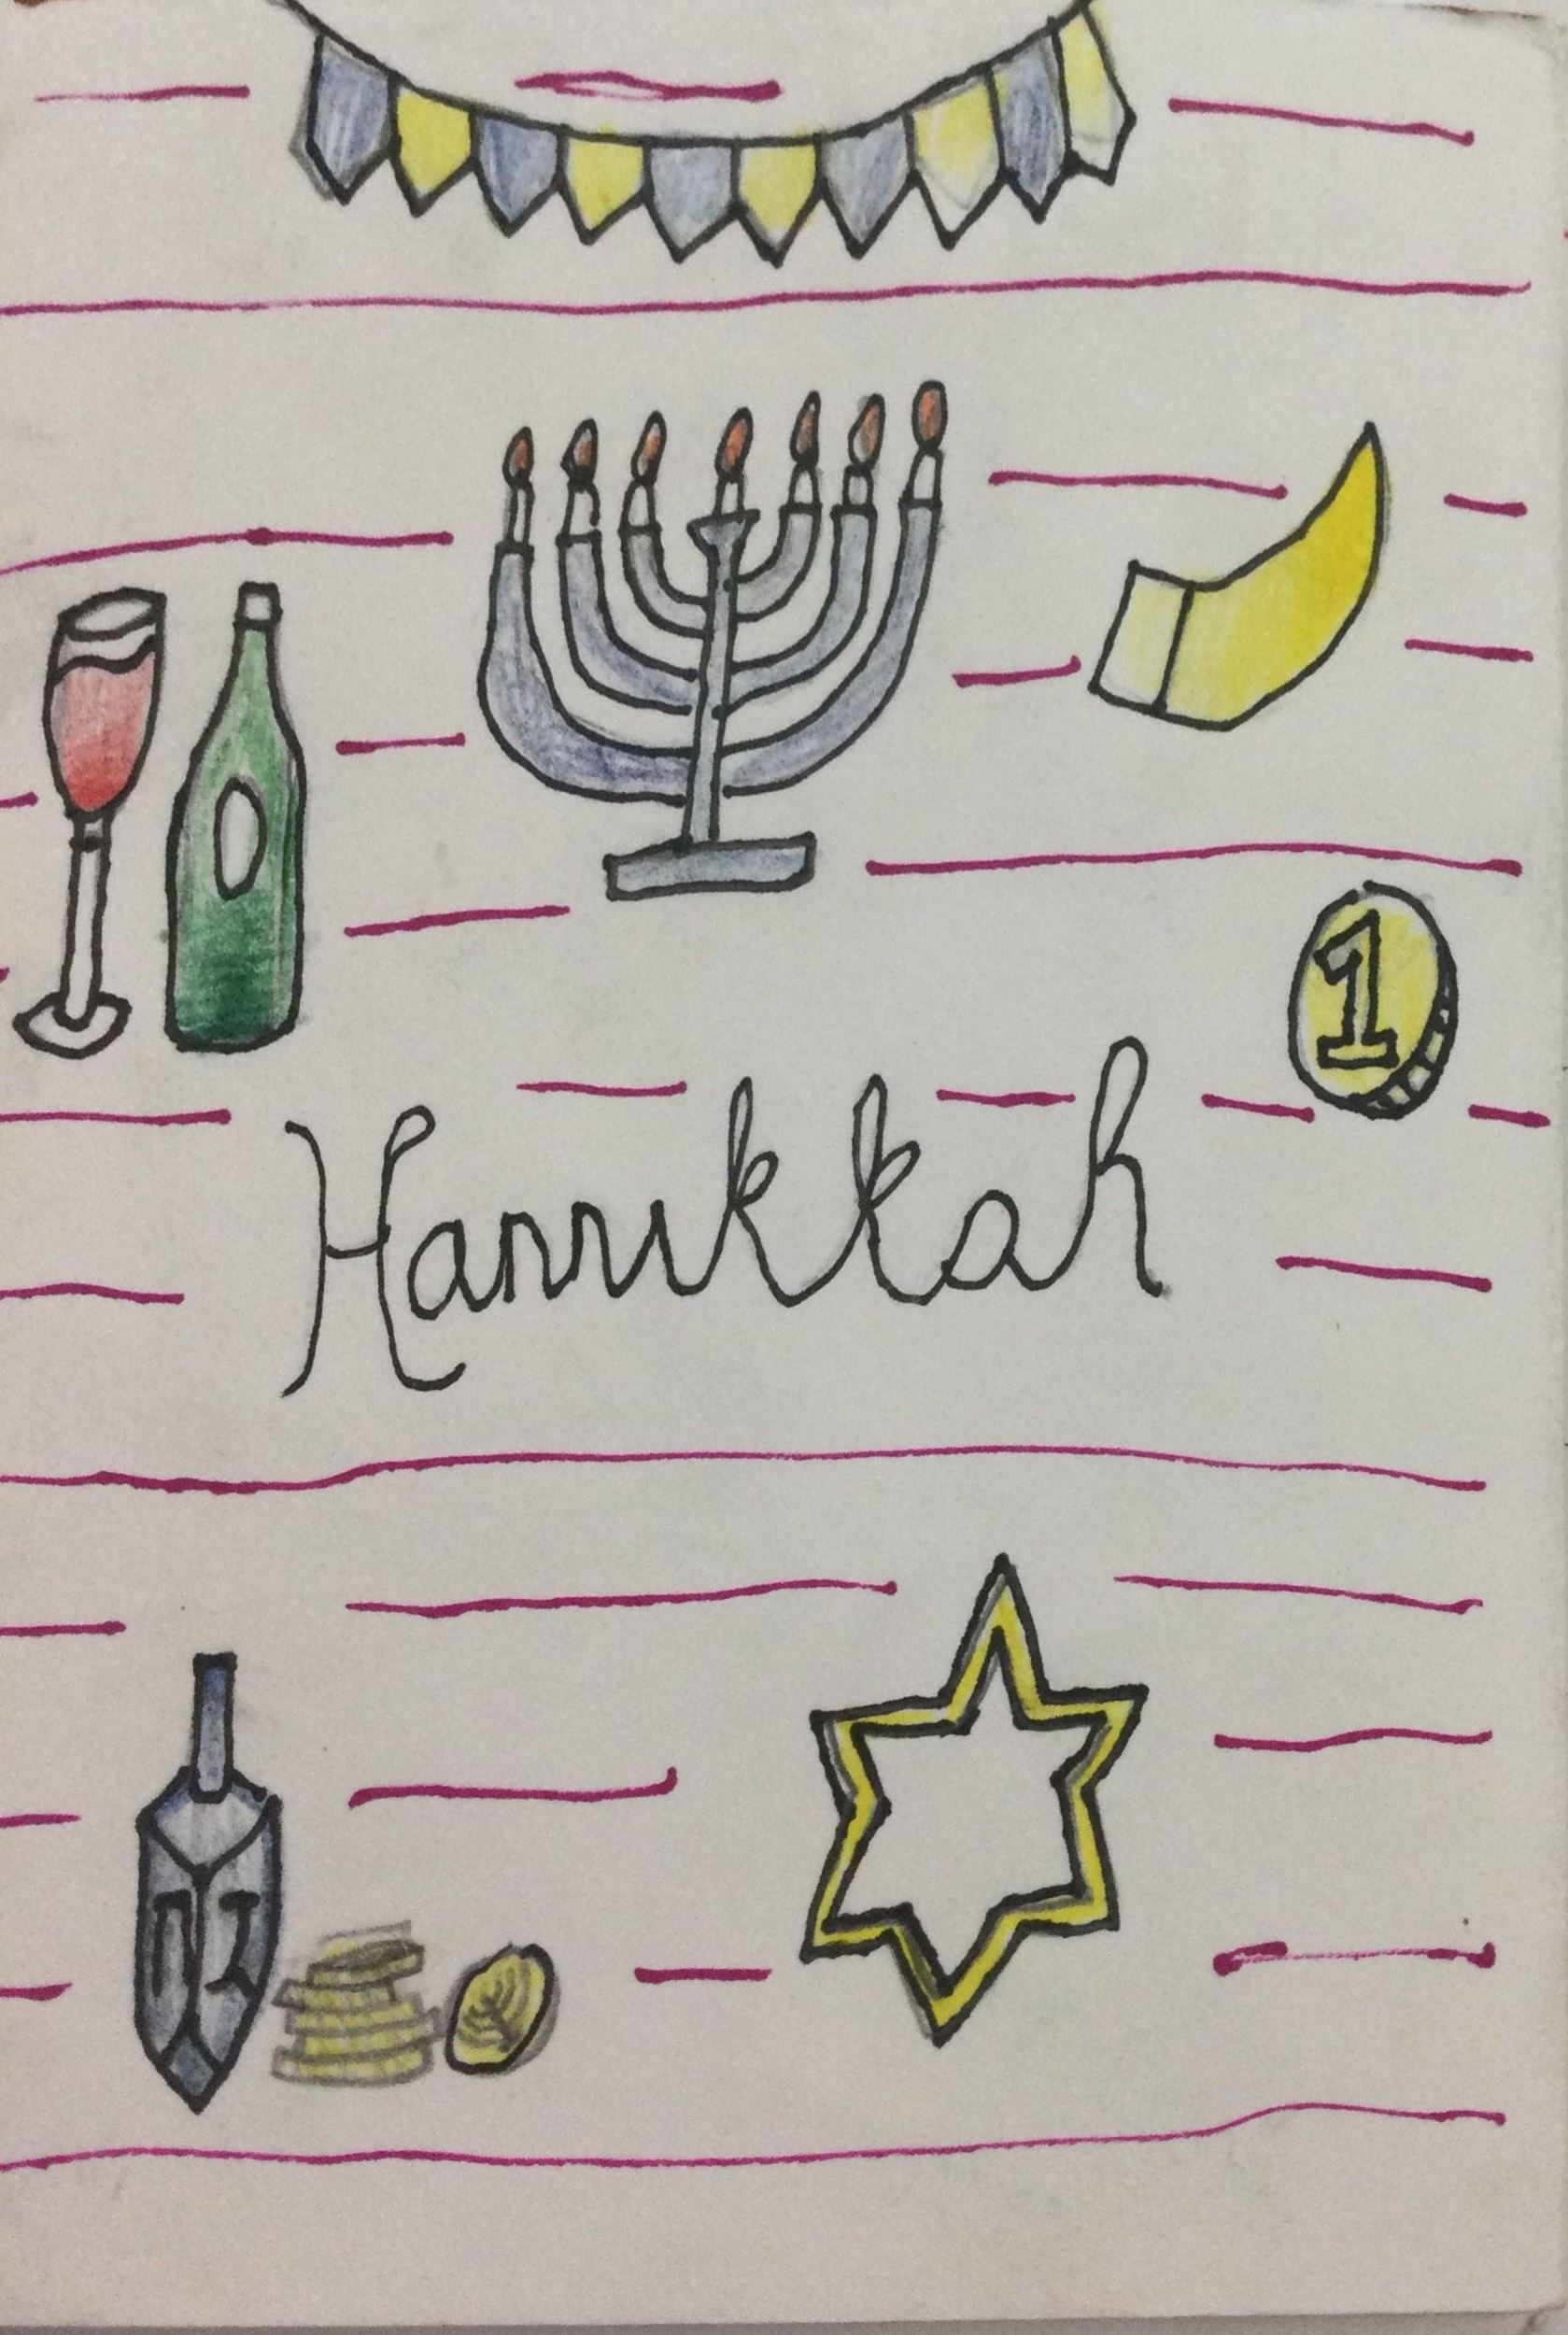 1
Hanukkah
ג